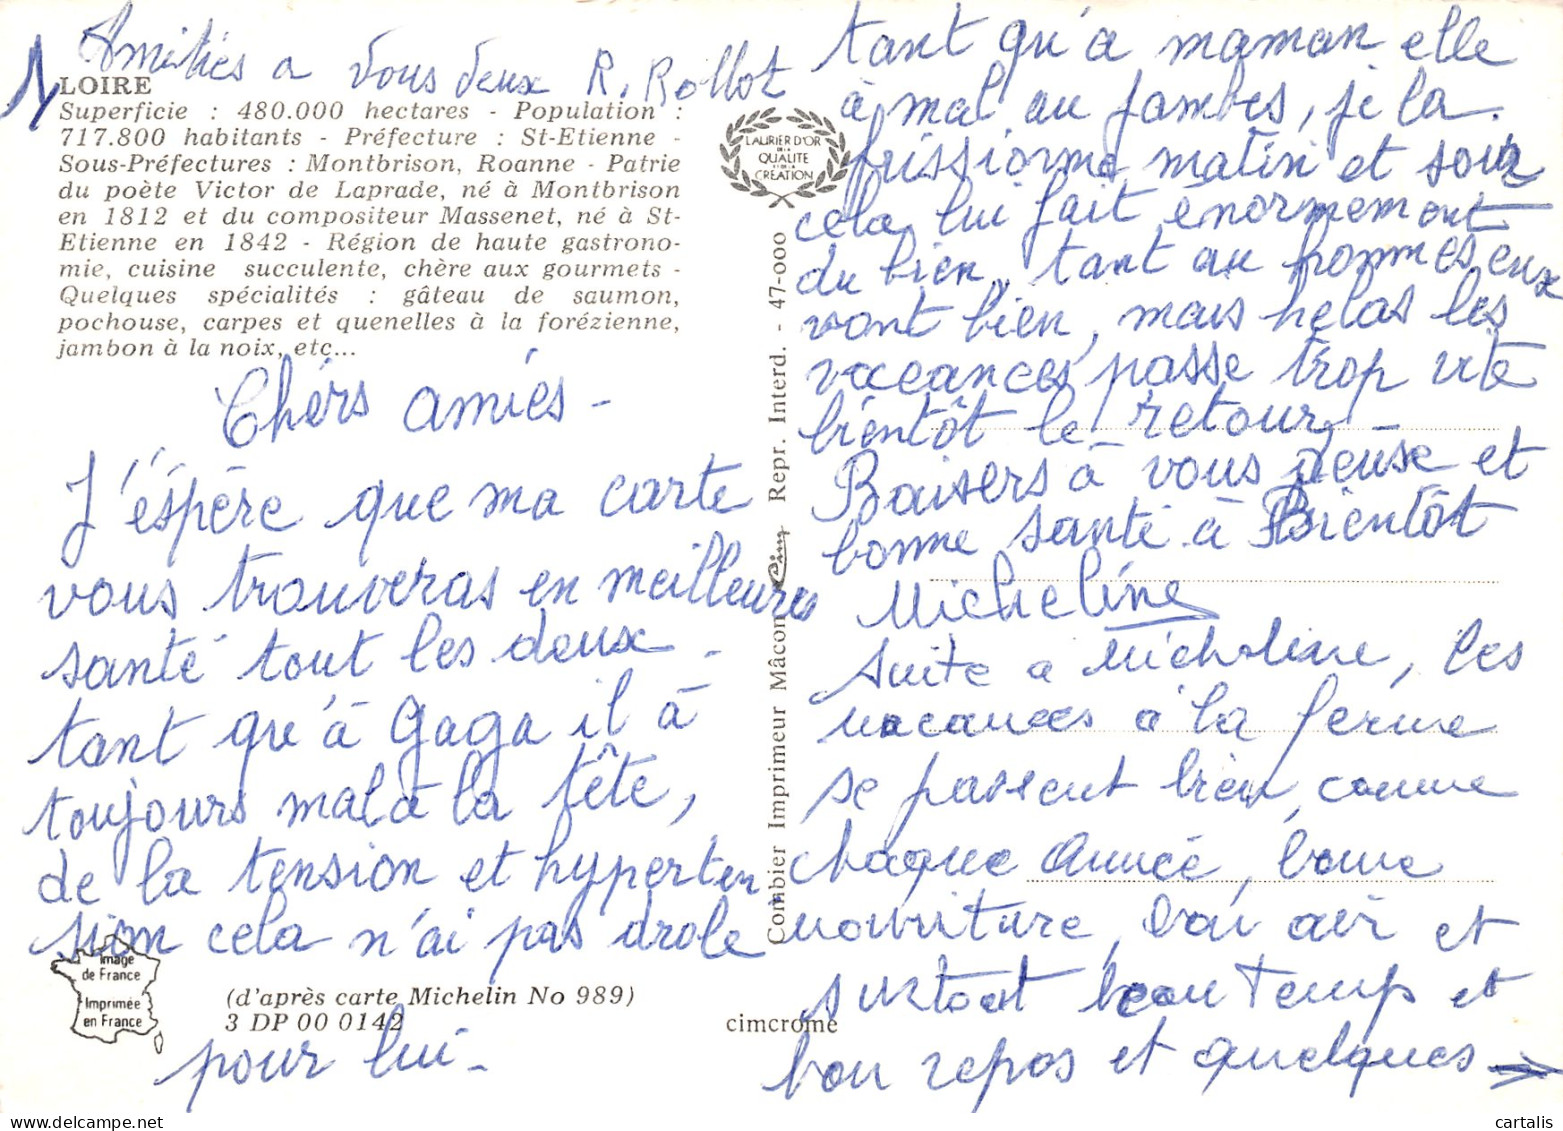 Amitiés a vous deux R. Rollot
LOIRE
Superficie : 480.000 hectares - Population :
717.800 habitants - Préfecture : St-Etienne -
Sous-Préfectures : Montbrison, Roanne - Patrie
du poète Victor de Laprade, né à Montbrison
en 1812 et du compositeur Massenet, né à St-
Etienne en 1842 - Région de haute gastrono-
mie, cuisine succulente, chère aux gourmets -
Quelques spécialités : gâteau de saumon,
pochouse, carpes et quenelles à la forézienne,
jambon à la noix, etc...
Chérs amiés -
J'éspère que ma carte
vous trouveras en meilleures
santé tout les deux -
tant qu'à Gaga il à
toujours mal à la tête,
de la tension et hyperten
sion cela n'ai pas drole
pour lui -
Image
de France
Imprimée
en France
(d'après carte Michelin No 989)
3 DP 00 0142
cimcrome
LAURIER D'OR
DE LA
QUALITE
ET DE LA
CREATION
Combier Imprimeur Mâcon Cim Repr. Interd. - 47-000
tant qu'a maman elle
à mal au jambes, je la
frissionne matin et soir
cela lui fait énormement
du bien, tant au hommes eux
vont bien, mais helas les
vaceances passe trop vite
bientôt le retour -
Baisers à vous deuse et
bonne santé à Bientôt
Micheline
suite a Micheline, les
vacances à la ferme
se passent bien, comme
chaque Année, bonne
nourriture, bon air et
surtout beau Temps et
bon repos et quelques →